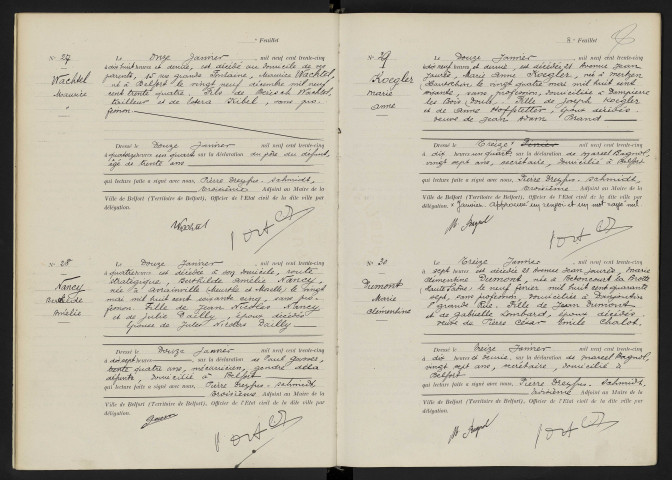 - Feuillet
N° 27
Wachtel
Maurice
Le Onze Janvier mil neuf cent trente-cinq
à dix huit heures et demie, est décédé au domicile de ses
parents, 15 rue grande Fontaine, Maurice Wachtel,
né à Belfort le vingt neuf décembre mil neuf
cent trente quatre. Fils de Berisch Wachtel,
tailleur et de Estera Kibel, sans pro-
fession
Dressé le Douze Janvier mil neuf cent trente-cinq
à quatorze heures un quart sur la déclaration du père du défunt,
âgé de trente ans
qui lecture faite a signé avec nous, Pierre Dreyfus-Schmidt,
troisième Adjoint au Maire de la
Ville de Belfort (Territoire de Belfort), Officier de l'Etat civil de la dite ville par
délégation.
Wachtel
N° 28
Nancy
Berthilde
Amélie
Le Douze Janvier mil neuf cent trente-cinq
à quatre heures est décédée à son domicile, route
stratégique, Berthilde Amélie Nancy,
née à (Meurthe et Moselle) le vingt
mars mil huit cent soixante cinq, sans pro-
fession. Fille de Jean Nicolas Nancy
et de Julie Dailly, époux décédés
Epouse de Jules Nicolas Dailly
Dressé le Douze Janvier mil neuf cent trente-cinq
à dix sept heures sur la déclaration de Paul
trente quatre ans, mécanicien, gendre de la
défunte, domicilié à Belfort
qui lecture faite a signé avec nous, Pierre Dreyfus-Schmidt,
troisième Adjoint au Maire de la
Ville de Belfort (Territoire de Belfort), Officier de l'Etat civil de la dite ville par
délégation.
8 Feuillet
N° 29
Koegler
Marie
Anne
Le Douze Janvier mil neuf cent trente-cinq
à dix neuf heures et demie, est décédée 23 Avenue Jean
Jaurès, Marie Anne Koegler, née à
le vingt quatre mars mil huit cent
soixante, sans profession, domiciliée à Dampierre
les Bois, Doubs. Fille de Joseph Koegler
et de Anne Hoffstetter, époux décédés.
Veuve de Jean Adam Brand
Dressé le Treize Janvier mil neuf cent trente-cinq
à dix heures un quart sur la déclaration de Marcel Bagnol,
vingt sept ans, secrétaire, domicilié à Belfort
qui lecture faite a signé avec nous, Pierre Dreyfus-Schmidt,
troisième Adjoint au Maire de la
Ville de Belfort (Territoire de Belfort), Officier de l'Etat civil de la dite ville par
délégation. x Janvier. Approuvé un renvoi et un mot rayé nul
N° 30
Dumont
Marie
Clémentine
Le Treize Janvier mil neuf cent trente-cinq
à sept heures est décédée 23 Avenue Jean Jaurès, Marie
Clémentine Dumont, née à Betoncourt la Brotte
Haute Saône le neuf février mil huit cent quarante
sept, sans profession, domiciliée à Danjoutin
grande Rue. Fille de Jean Dumont
et de Gabrielle Lombard, époux décédés
Veuve de Pierre César Emile Chalot
Dressé le Treize Janvier mil neuf cent trente-cinq
à dix heures et demie, sur la déclaration de Marcel Bagnol,
vingt sept ans, secrétaire, domicilié à
Belfort
qui lecture faite a signé avec nous, Pierre Dreyfus-Schmidt,
troisième Adjoint au Maire de la
Ville de Belfort (Territoire de Belfort), Officier de l'Etat civil de la dite ville par
délégation.